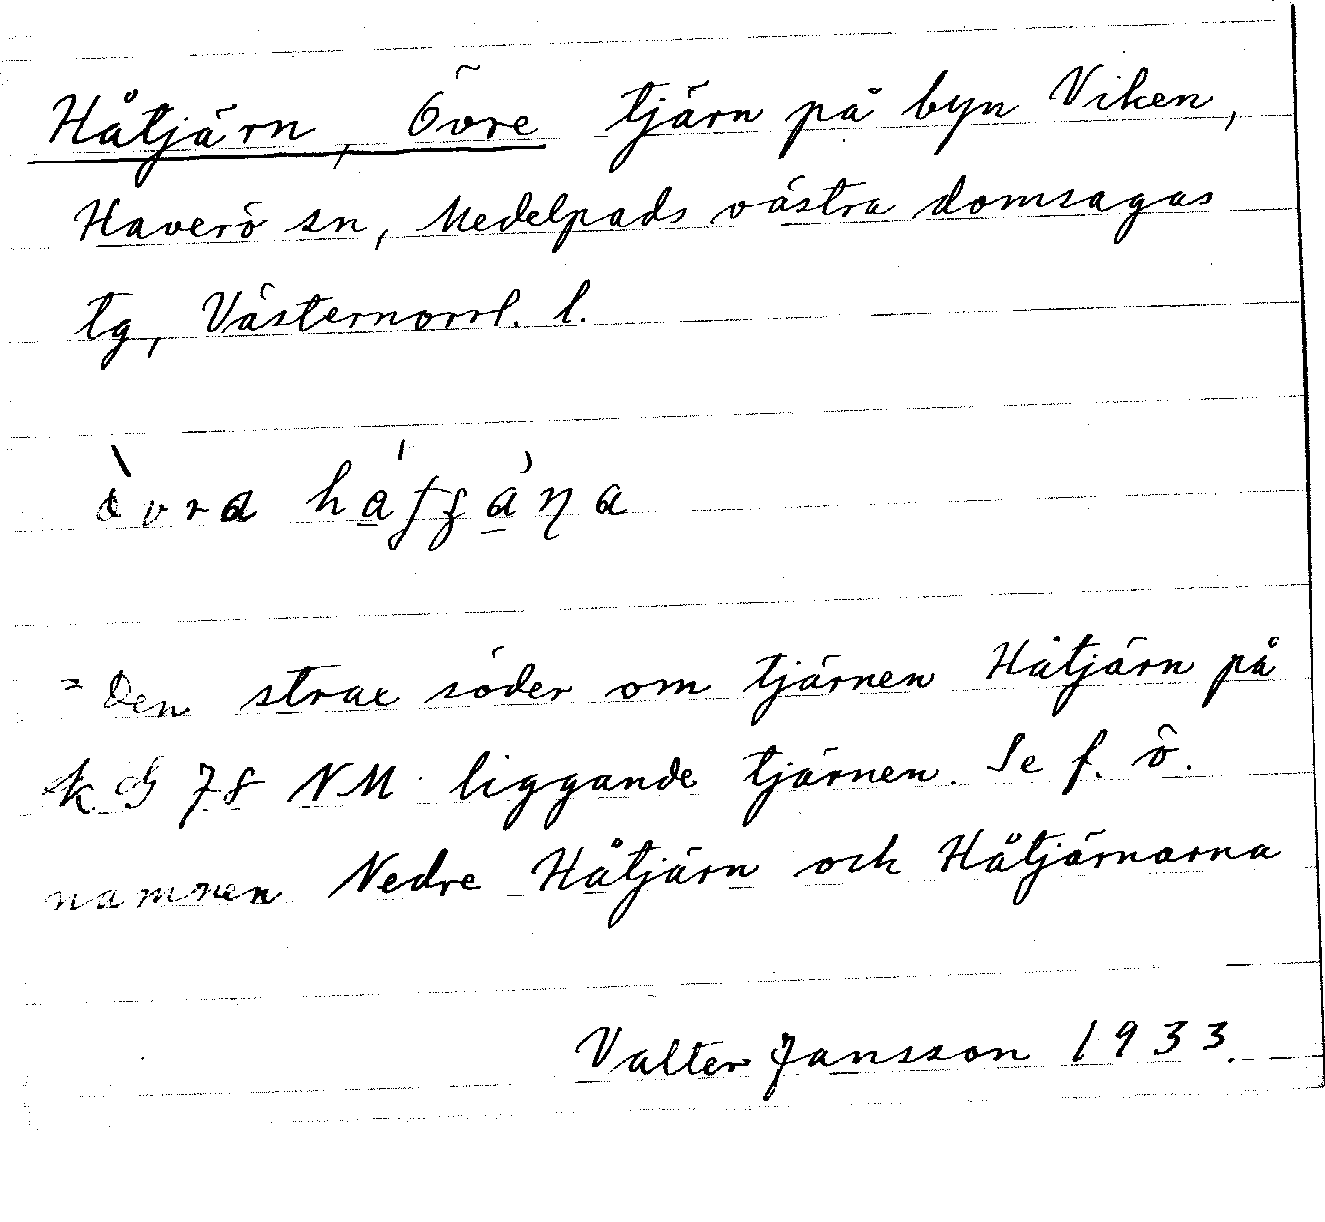 Håtjärn, Övre tjärn på byn Viken,
Haverö sn, Medelpads västra domsagas
tg, Västernorrl. l.
= Den strax söder om tjärnen Håtjärn på
k. G 78 NM liggande tjärnen. Se f. ö.
namnen Nedre Håtjärn och Håtjärnarna
Valter Jansson 1933.